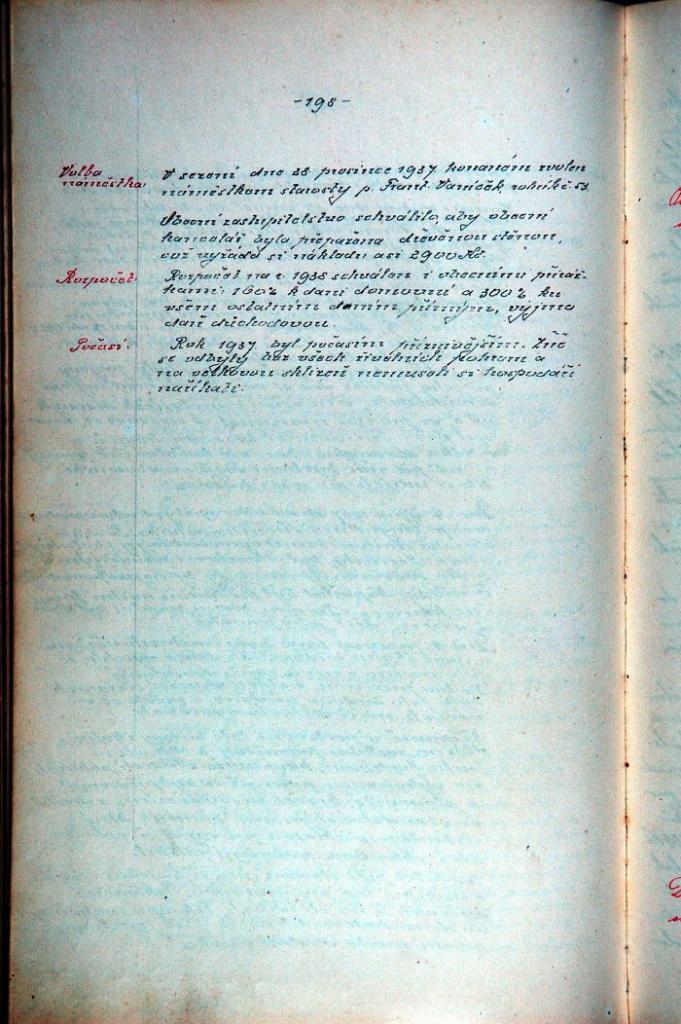 -198-
Volba
náměstka.
V sezení dne 28 prosince 1937 konaném zvolen
náměstkem starosty p. Frant. Vaníček rolník č. 53
Obecní zastupitelstvo schválilo, aby obecní
kancelář byla přepažena dřevěnou stěnou,
což vyžádá si nákladu asi 2900 Kč.
Rozpočet.
Rozpočet na r. 1938 schválen s obecními přiráž-
kami: 160% k dani domovní a 300% ku
všem ostatním daním přímým, vyjma
daň důchodovou.
Počasí.
Rok 1937 byl počasím příznivějším. Žně
se odbyly bez všech živelních pohrom a
na celkovou sklizeň nemuseli si hospodáři
naříkati.